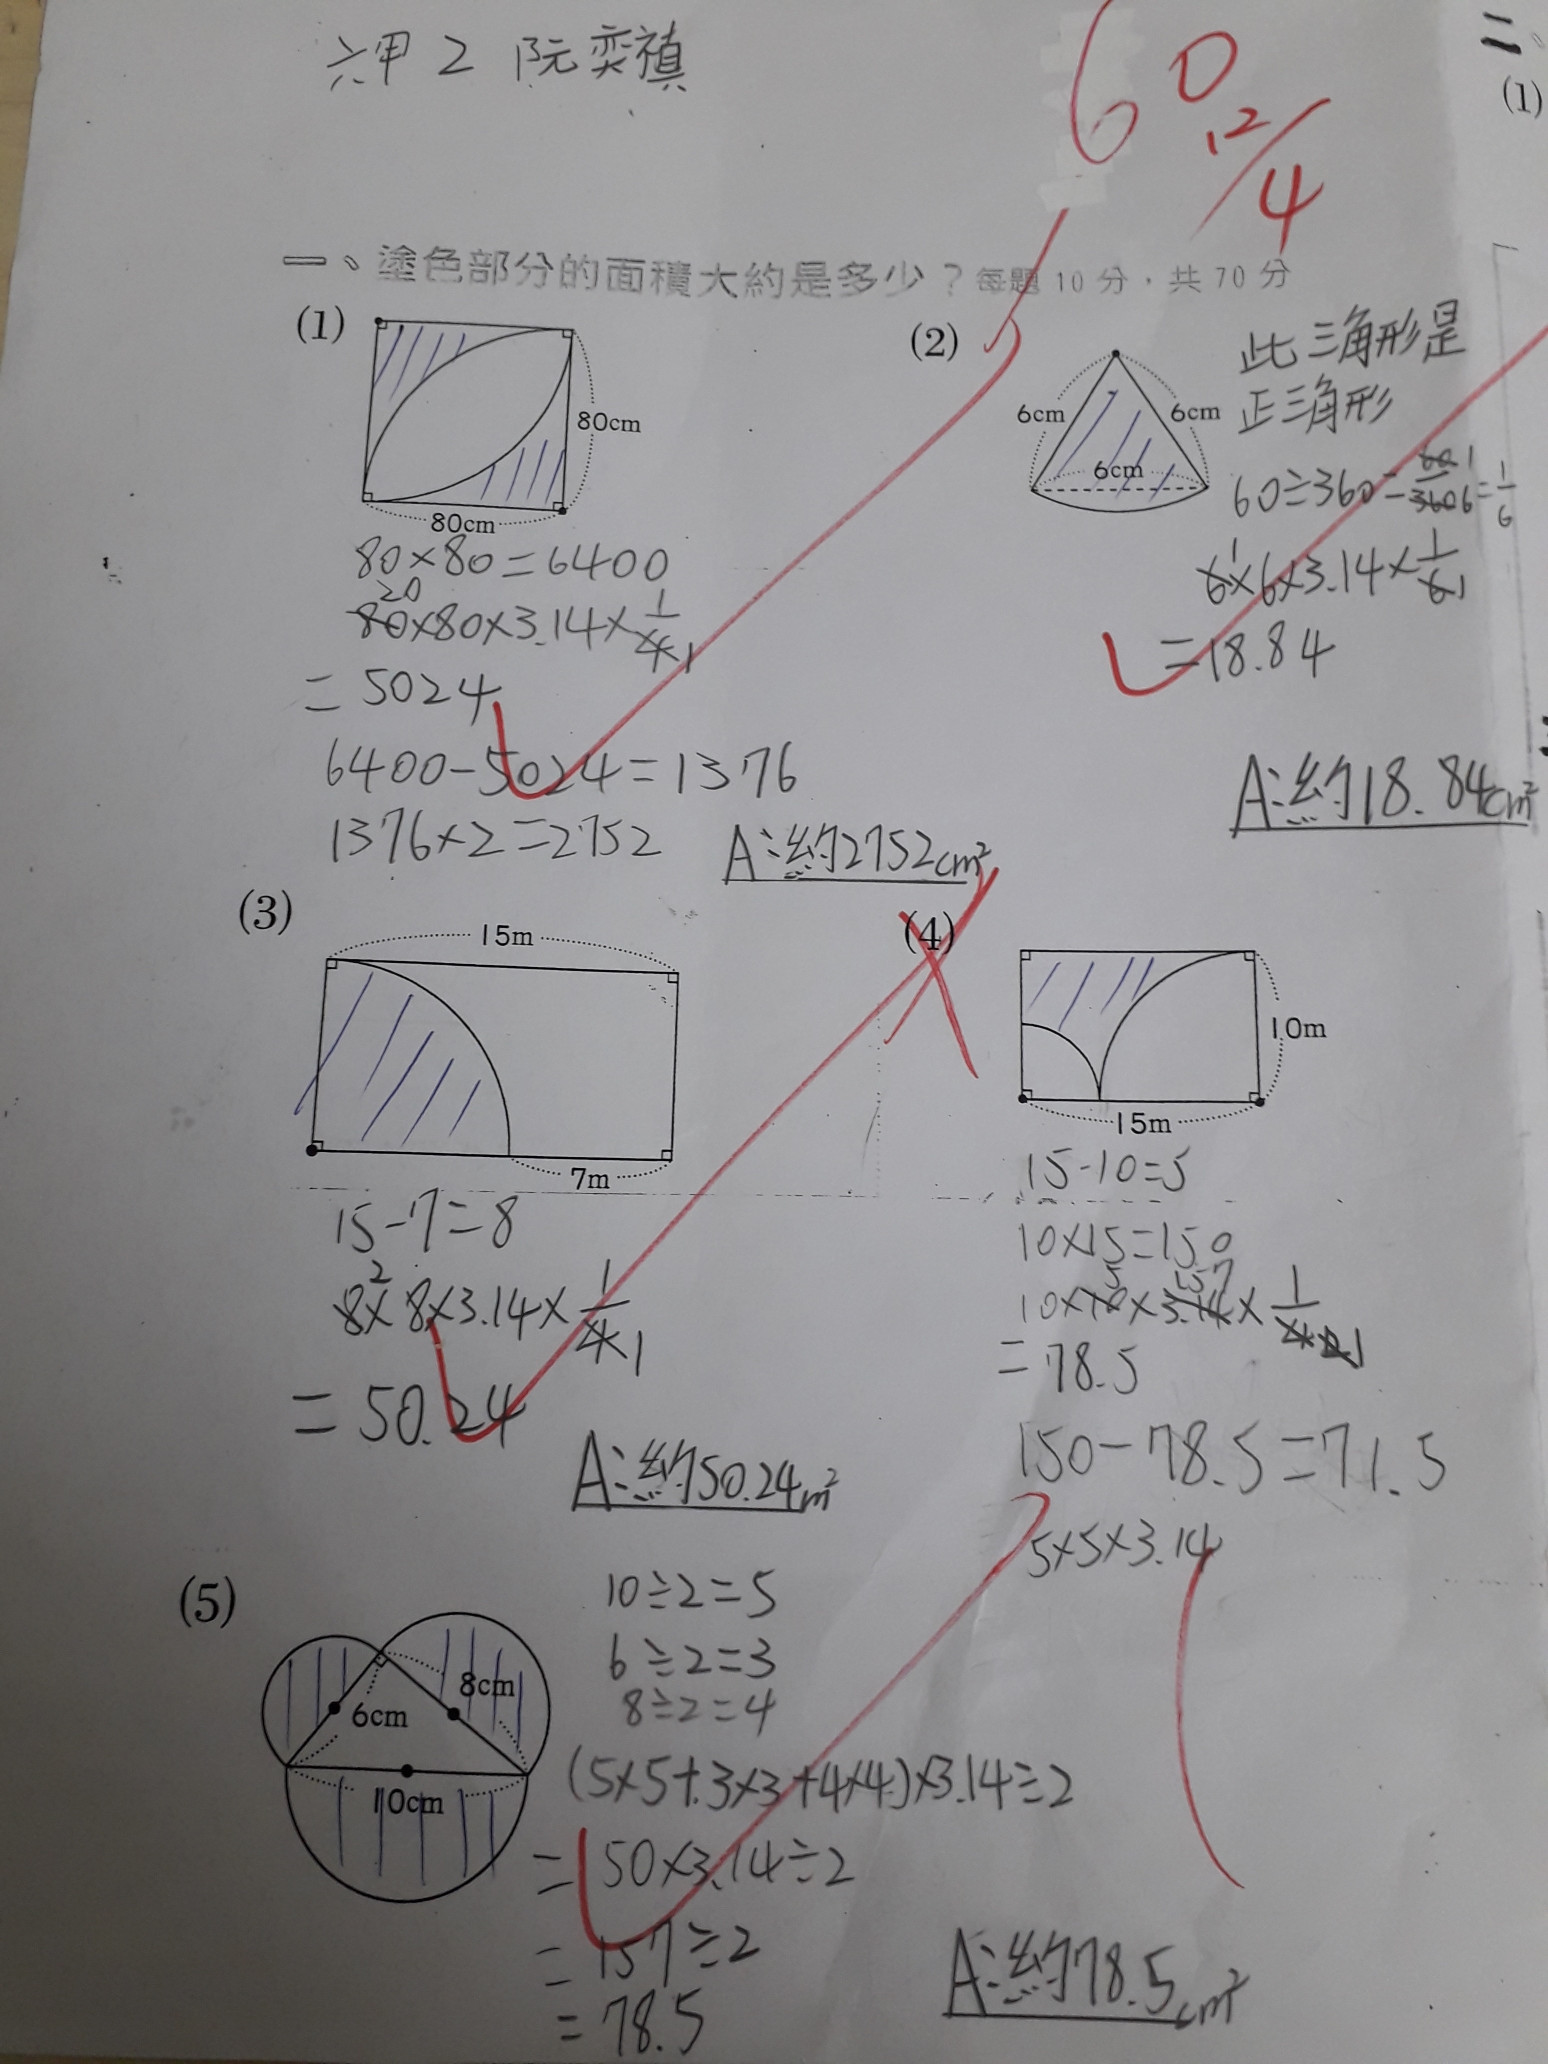 六甲 2 阮奕禛
60
12/4
二、
(1)
一、塗色部分的面積大約是多少？每題 10 分，共 70 分
(1)
80cm
80cm
80×80=6400
20
80×80×3.14×1/4 1
=5024
6400-5024=1376
1376×2=2752
A:約2752cm²
(2)
6cm
6cm
6cm
此三角形是
正三角形
60÷360=60 1/360 6=1/6
1
6×6×3.14×1/6 1
=18.84
A:約18.84cm²
(3)
15m
7m
15-7=8
2
8×8×3.14×1/4 1
=50.24
A:約50.24m²
(4)
10m
15m
15-10=5
10×15=150
5 157
10×10×3.14×1/4 2 1
=78.5
150-78.5=71.5
5×5×3.14
(5)
8cm
6cm
10cm
10÷2=5
6÷2=3
8÷2=4
(5×5+3×3+4×4)×3.14÷2
=50×3.14÷2
=157÷2
=78.5
A:約78.5cm²